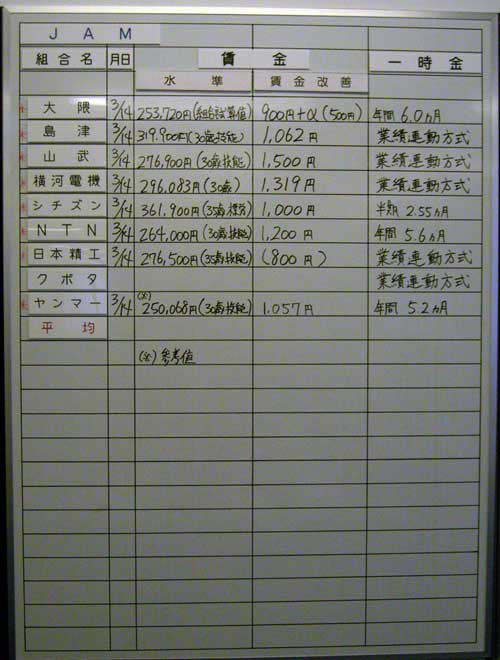 JAM
組合名 月日 賃金 一時金
水準 賃金改善
大隈 3/14 253,720円(組合試算値) 900円+α(500円) 年間 6.0ヵ月
島津 3/14 319,900円(30歳技能) 1,062円 業績連動方式
山武 3/14 276,900円(30歳技能) 1,500円 業績連動方式
横河電機 3/14 296,083円(30歳) 1,319円 業績連動方式
シチズン 3/14 361,900円(35歳標労) 1,000円 半期 2.55ヵ月
NTN 3/14 264,000円(30歳技能) 1,200円 年間 5.6ヵ月
日本精工 3/14 276,500円(35歳技能) (800円) 業績連動方式
クボタ 業績連動方式
ヤンマー 3/14 (※)250,068円(30歳技能) 1,057円 年間 5.2ヵ月
平均
(※)参考値